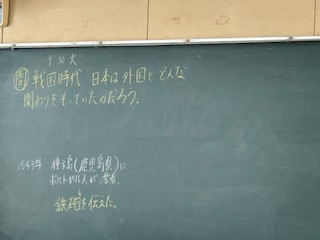 火
問 戦国時代 日本は外国と どんな
関わりをもっていたのだろう。
1543年 種子島(鹿児島県)に
ポルトガル人が 漂着。
↓
鉄砲を伝えた。